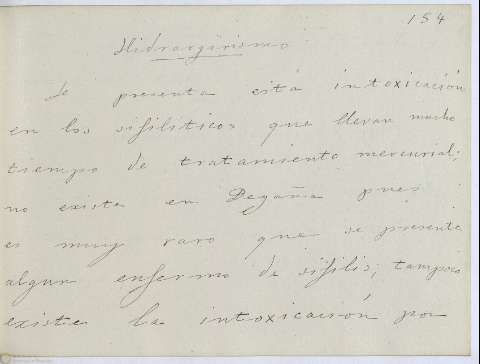 154
Hidrargirismo
Se presenta está intoxicación
en los sifiliticos que llevan mucho
tiempo de tratamiento mercurial;
no existe en Degaña pues
es muy raro que se presente
algun enfermo de sifilis; tampoco
existe la intoxicación por